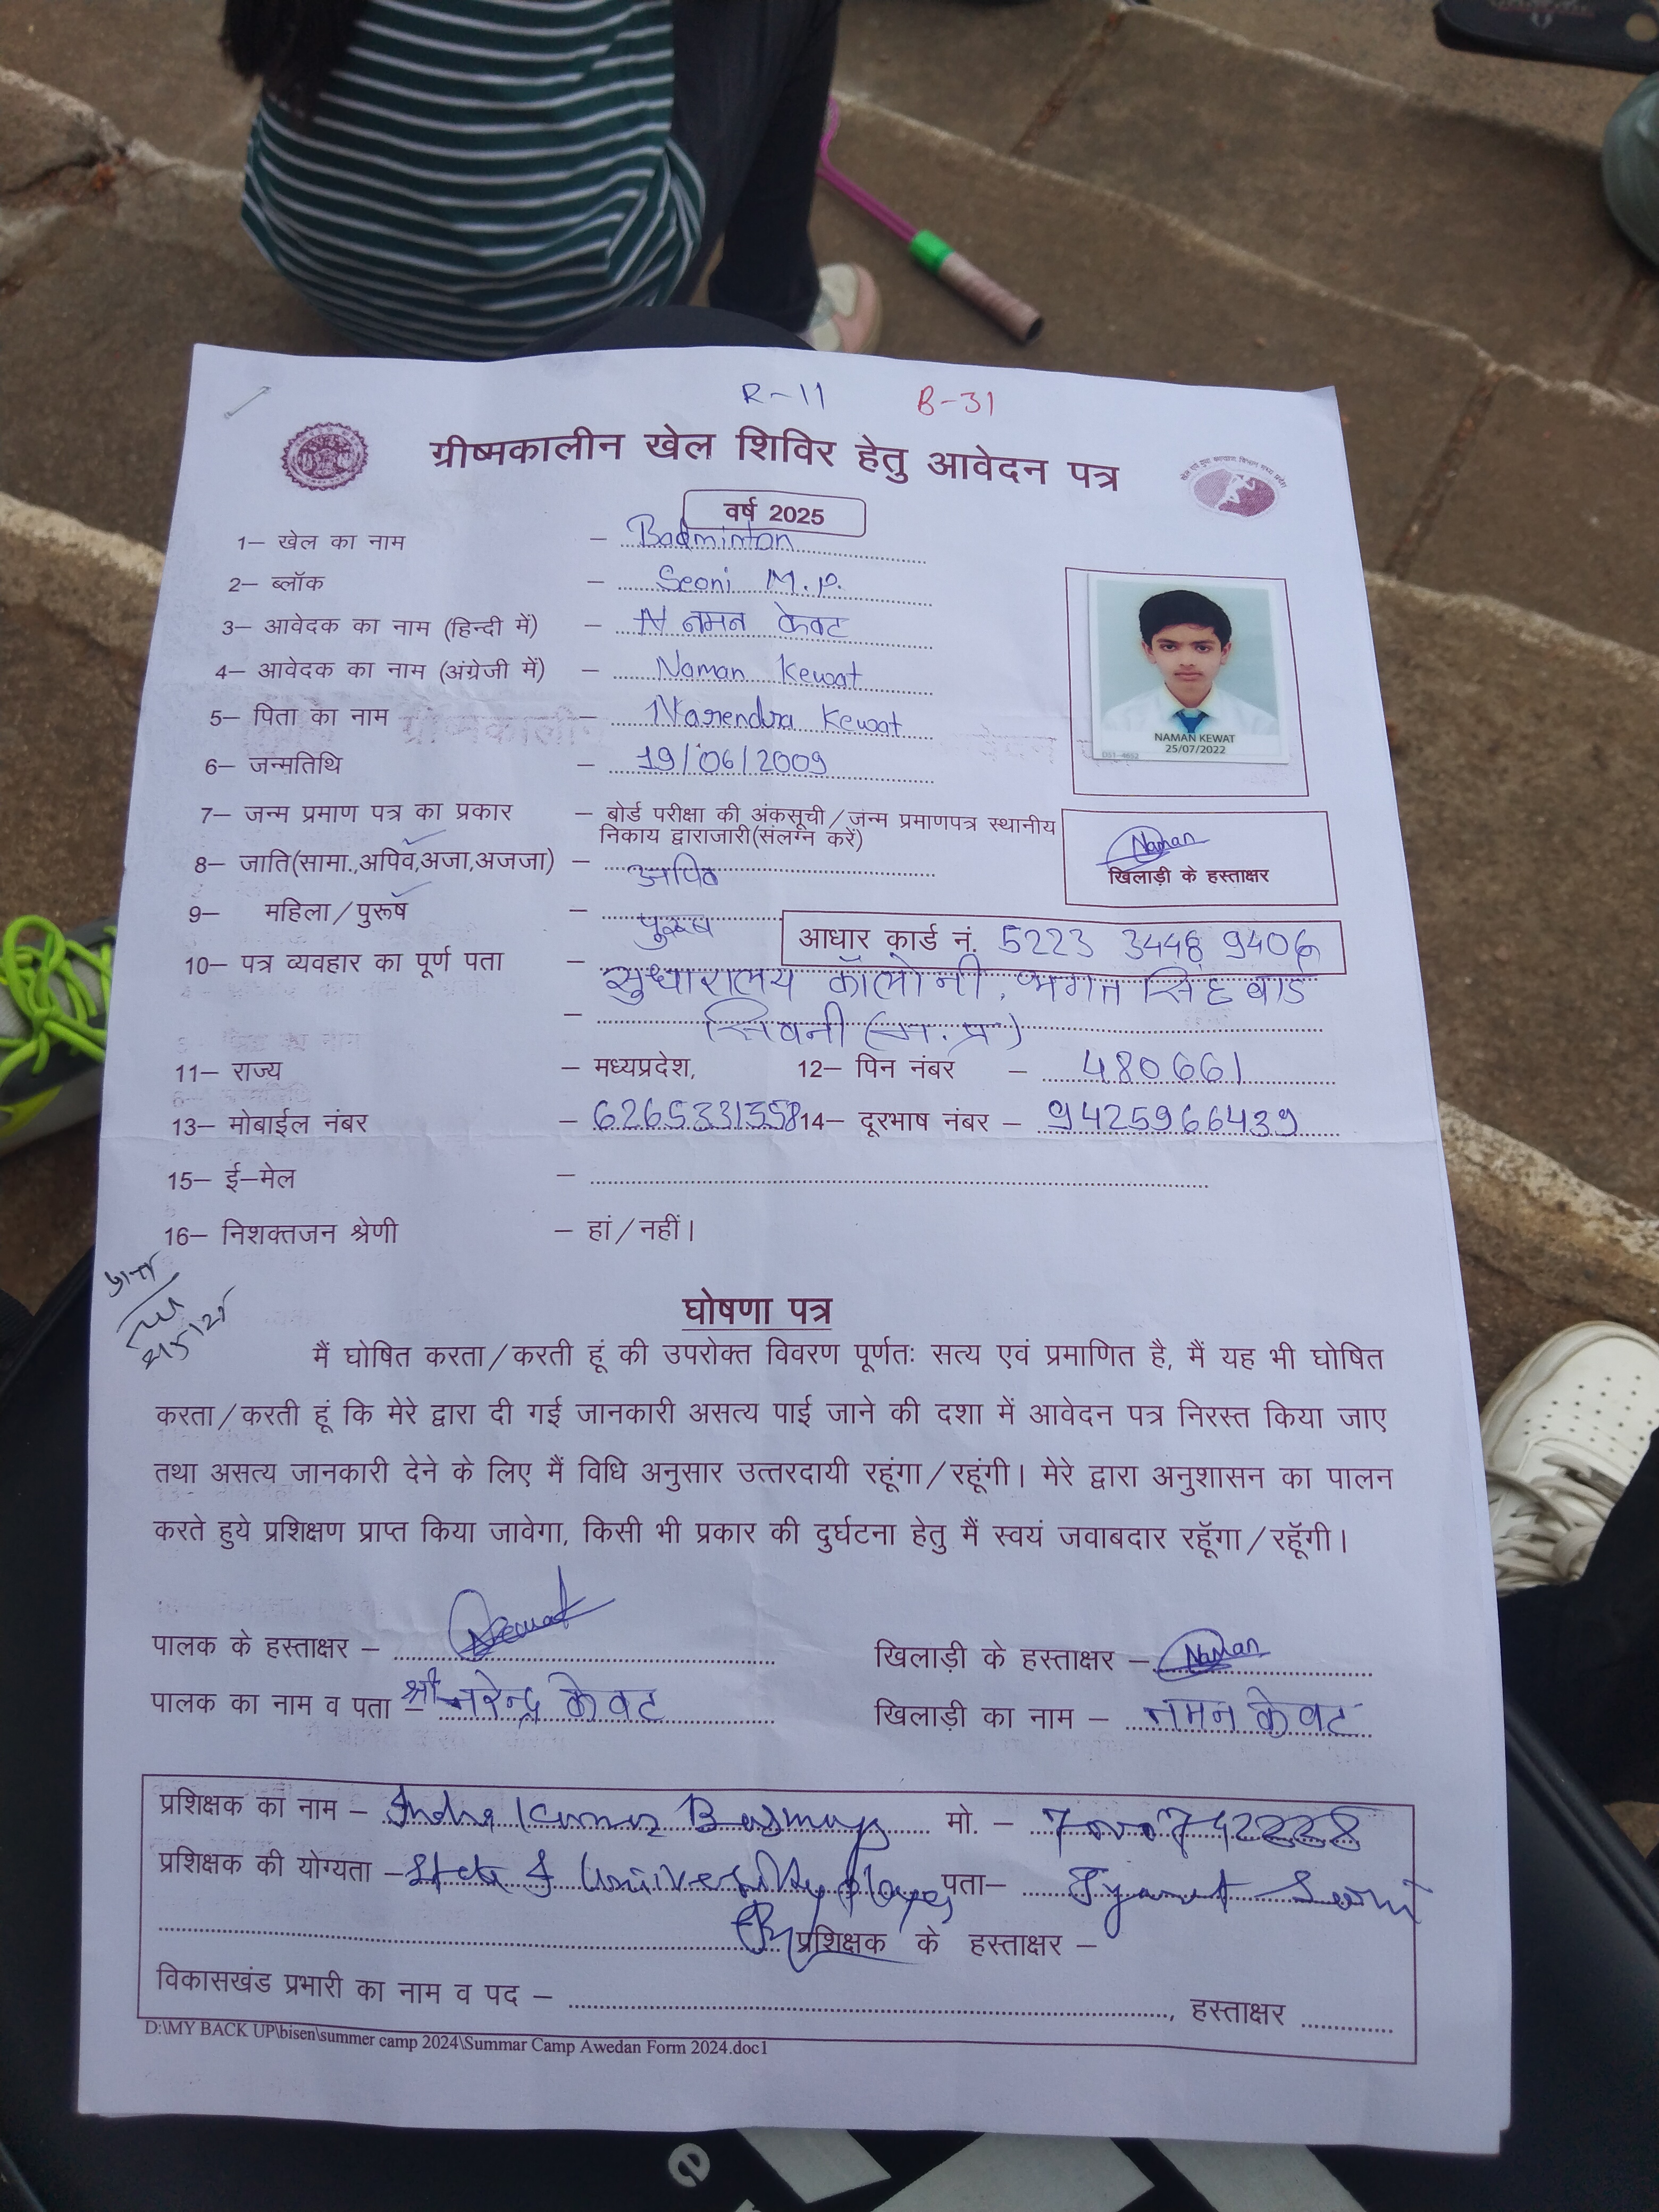 R-11 B-31
ग्रीष्मकालीन खेल शिविर हेतु आवेदन पत्र
खेल एवं युवा कल्याण विभाग मध्य प्रदेश
वर्ष 2025
1– खेल का नाम – Badminton
2– ब्लॉक – Seoni M.P.
3– आवेदक का नाम (हिन्दी में) – नमन केवट
4– आवेदक का नाम (अंग्रेजी में) – Naman Kewat
5– पिता का नाम – Narendra Kewat
6– जन्मतिथि – 19/06/2009
NAMAN KEWAT
25/07/2022
7– जन्म प्रमाण पत्र का प्रकार – बोर्ड परीक्षा की अंकसूची/जन्म प्रमाणपत्र स्थानीय
निकाय द्वाराजारी(संलग्न करें)
Naman
खिलाड़ी के हस्ताक्षर
8– जाति(सामा.,अपिव,अजा,अजजा) – अपिव
9– महिला/पुरूष – पुरूष
आधार कार्ड नं. 5223 3448 9406
10– पत्र व्यवहार का पूर्ण पता – सुधारालय कॉलोनी, भगत सिंह वार्ड
– सिवनी (म.प्र)
11– राज्य – मध्यप्रदेश, 12– पिन नंबर – 480661
13– मोबाईल नंबर – 6265331358 14– दूरभाष नंबर – 9425966439
15– ई–मेल –
16– निशक्तजन श्रेणी – हां/नहीं।
घोषणा पत्र
मैं घोषित करता/करती हूं की उपरोक्त विवरण पूर्णतः सत्य एवं प्रमाणित है, मैं यह भी घोषित
करता/करती हूं कि मेरे द्वारा दी गई जानकारी असत्य पाई जाने की दशा में आवेदन पत्र निरस्त किया जाए
तथा असत्य जानकारी देने के लिए मैं विधि अनुसार उत्तरदायी रहूंगा/रहूंगी। मेरे द्वारा अनुशासन का पालन
करते हुये प्रशिक्षण प्राप्त किया जावेगा, किसी भी प्रकार की दुर्घटना हेतु मैं स्वयं जवाबदार रहूॅगा/रहूॅगी।
पालक के हस्ताक्षर – Kewat खिलाड़ी के हस्ताक्षर – Naman
पालक का नाम व पता – श्री नरेन्द्र केवट खिलाड़ी का नाम – नमन केवट
प्रशिक्षक का नाम – Kumar मो. –
प्रशिक्षक की योग्यता – University player पता– Seoni
प्रशिक्षक के हस्ताक्षर –
विकासखंड प्रभारी का नाम व पद – , हस्ताक्षर
D:\MY BACK UP\bisen\summer camp 2024\Summar Camp Awedan Form 2024.doc1